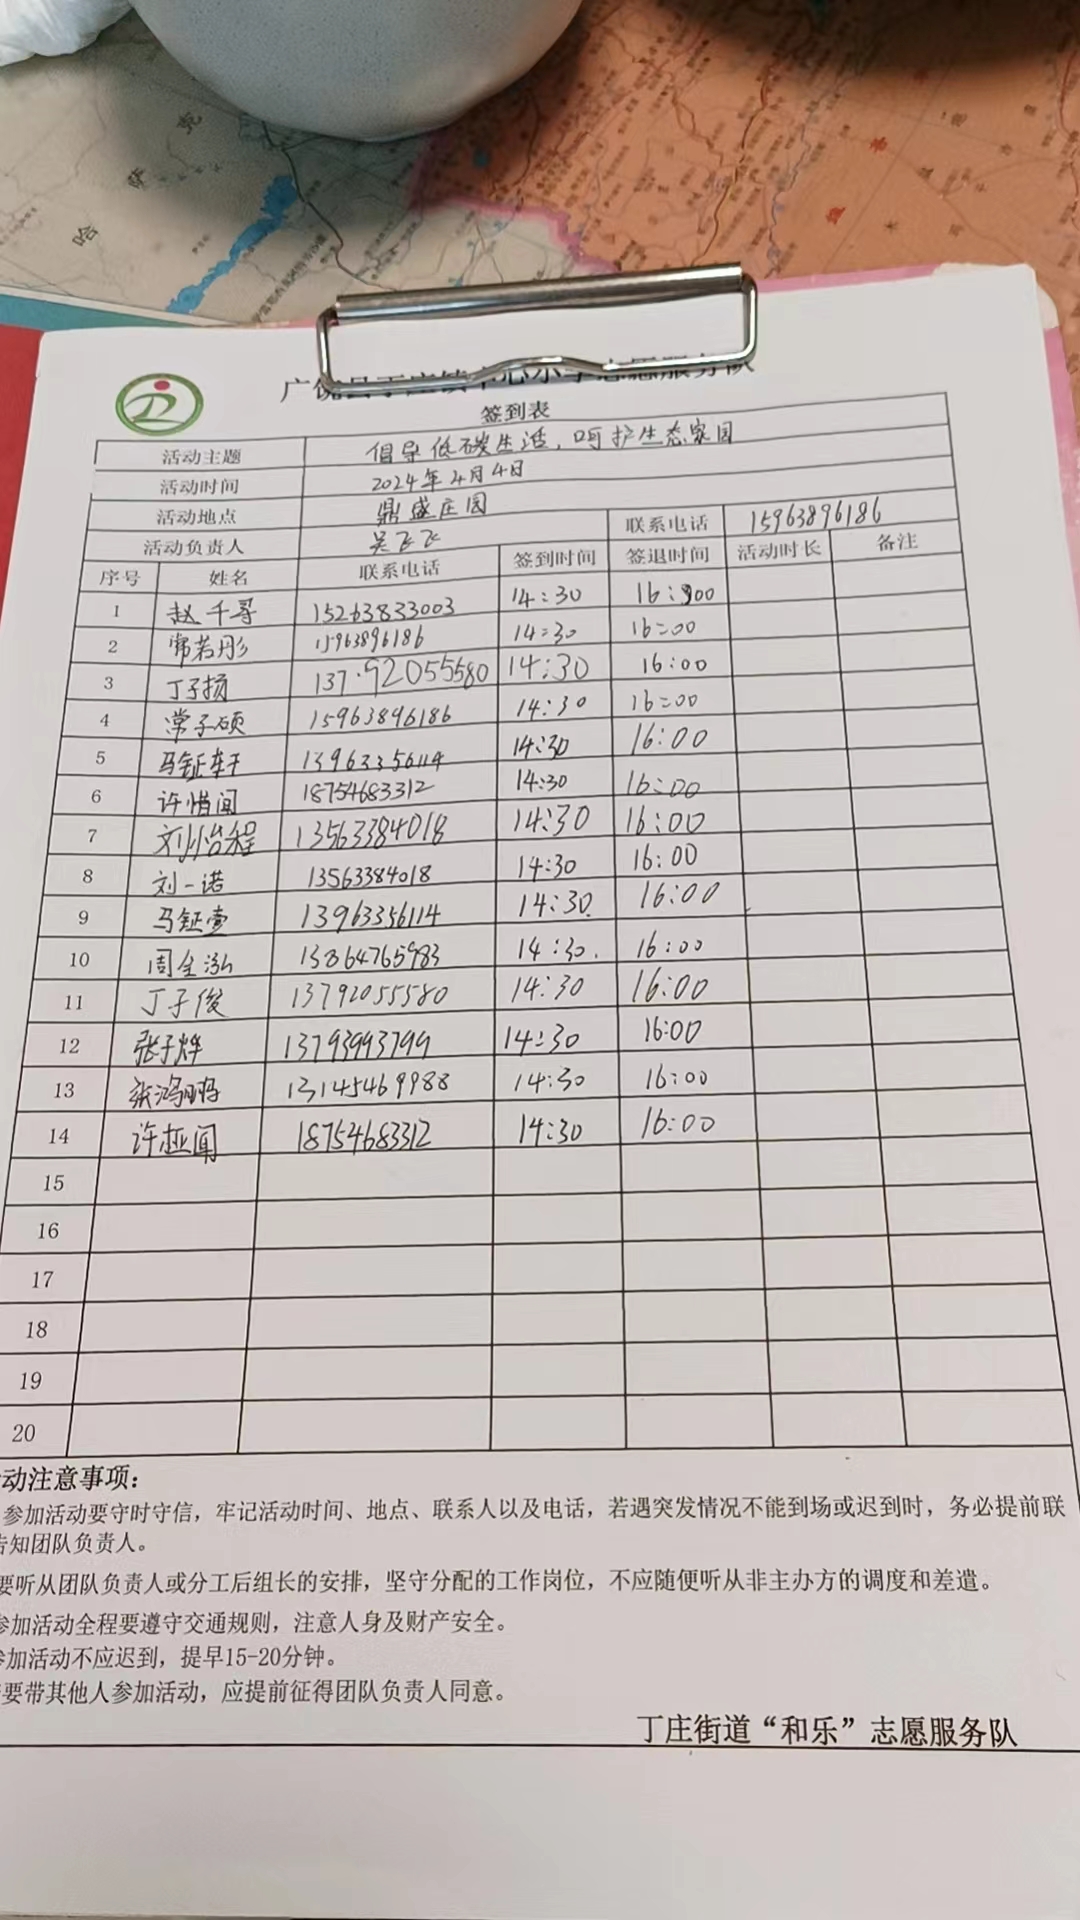 广饶县丁庄镇中心小学志愿服务队
签到表
活动主题 倡导低碳生活,呵护生态家园
活动时间 2024年4月4日
活动地点 鼎盛庄园
活动负责人 吴飞飞 联系电话 15963896186
序号 姓名 联系电话 签到时间 签退时间 活动时长 备注
1 赵千寻 15263833003 14:30 16:00
2 常若彤 15963896186 14:30 16:00
3 丁子扬 13792055580 14:30 16:00
4 常子硕 15963896186 14:30 16:00
5 马钲轩 13963356114 14:30 16:00
6 许惜闻 18754683312 14:30 16:00
7 刘怡程 13563384018 14:30 16:00
8 刘一诺 13563384018 14:30 16:00
9 马钲壹 13963356114 14:30 16:00
10 周全泓 13864765983 14:30 16:00
11 丁子俊 13792055580 14:30 16:00
12 张子烨 13793993799 14:30 16:00
13 张鸿鹏 13145469988 14:30 16:00
14 许桠闻 18754683312 14:30 16:00
15
16
17
18
19
20
动注意事项:
参加活动要守时守信,牢记活动时间、地点、联系人以及电话,若遇突发情况不能到场或迟到时,务必提前联
告知团队负责人。
要听从团队负责人或分工后组长的安排,坚守分配的工作岗位,不应随便听从非主办方的调度和差遣。
参加活动全程要遵守交通规则,注意人身及财产安全。
参加活动不应迟到,提早15-20分钟。
要带其他人参加活动,应提前征得团队负责人同意。
丁庄街道“和乐”志愿服务队